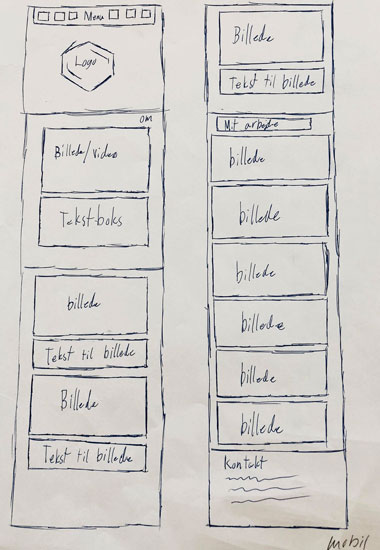 Menu
Logo
om
Billede/video
Tekst-boks
billede
Tekst til billede
Billede
Tekst til billede
Billede
Tekst til billede
Mit arbejde
billede
billede
billede
billede
billede
billede
Kontakt
mobil